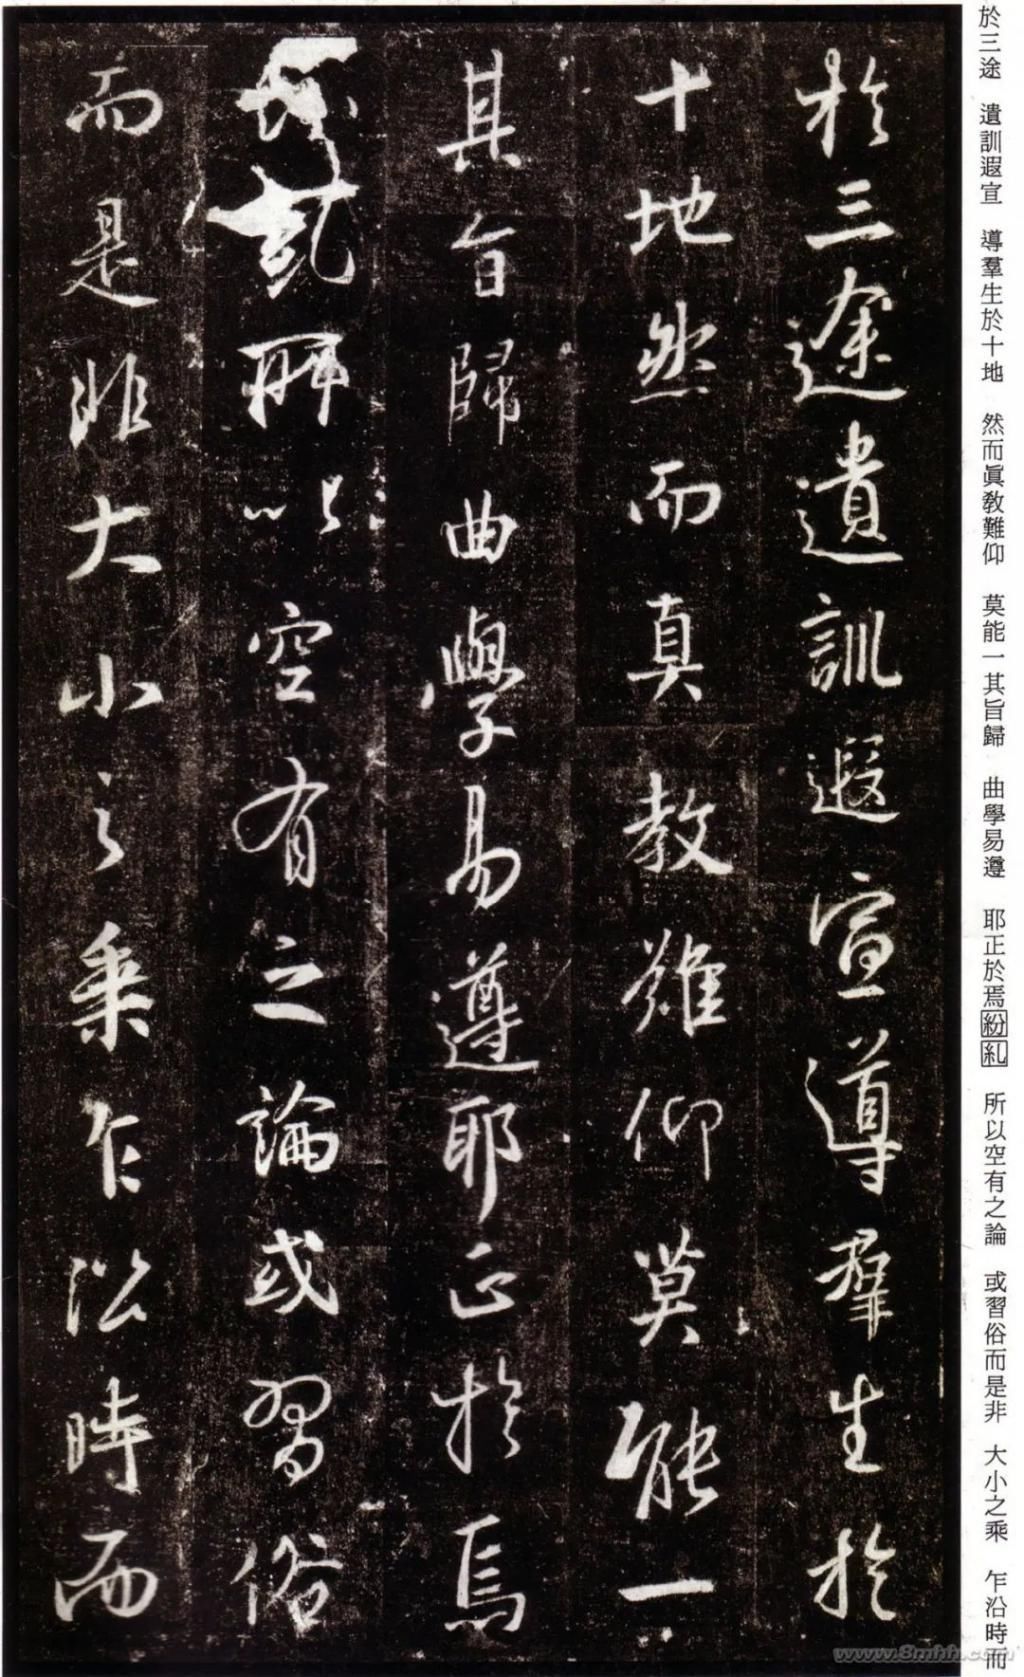 於三途　遺訓遐宣　導羣生於十地　然而眞教難仰　莫能一其旨歸　曲學易遵　耶正於焉紛糺　所以空有之論　或習俗而是非　大小之乘　乍沿時而
於三途遺訓遐宣導羣生於
十地然而真教難仰莫能一
其旨歸曲學易遵耶正於焉
所以空有之論或習俗
而是非大小之乘乍沿時而
www.8mhh.com